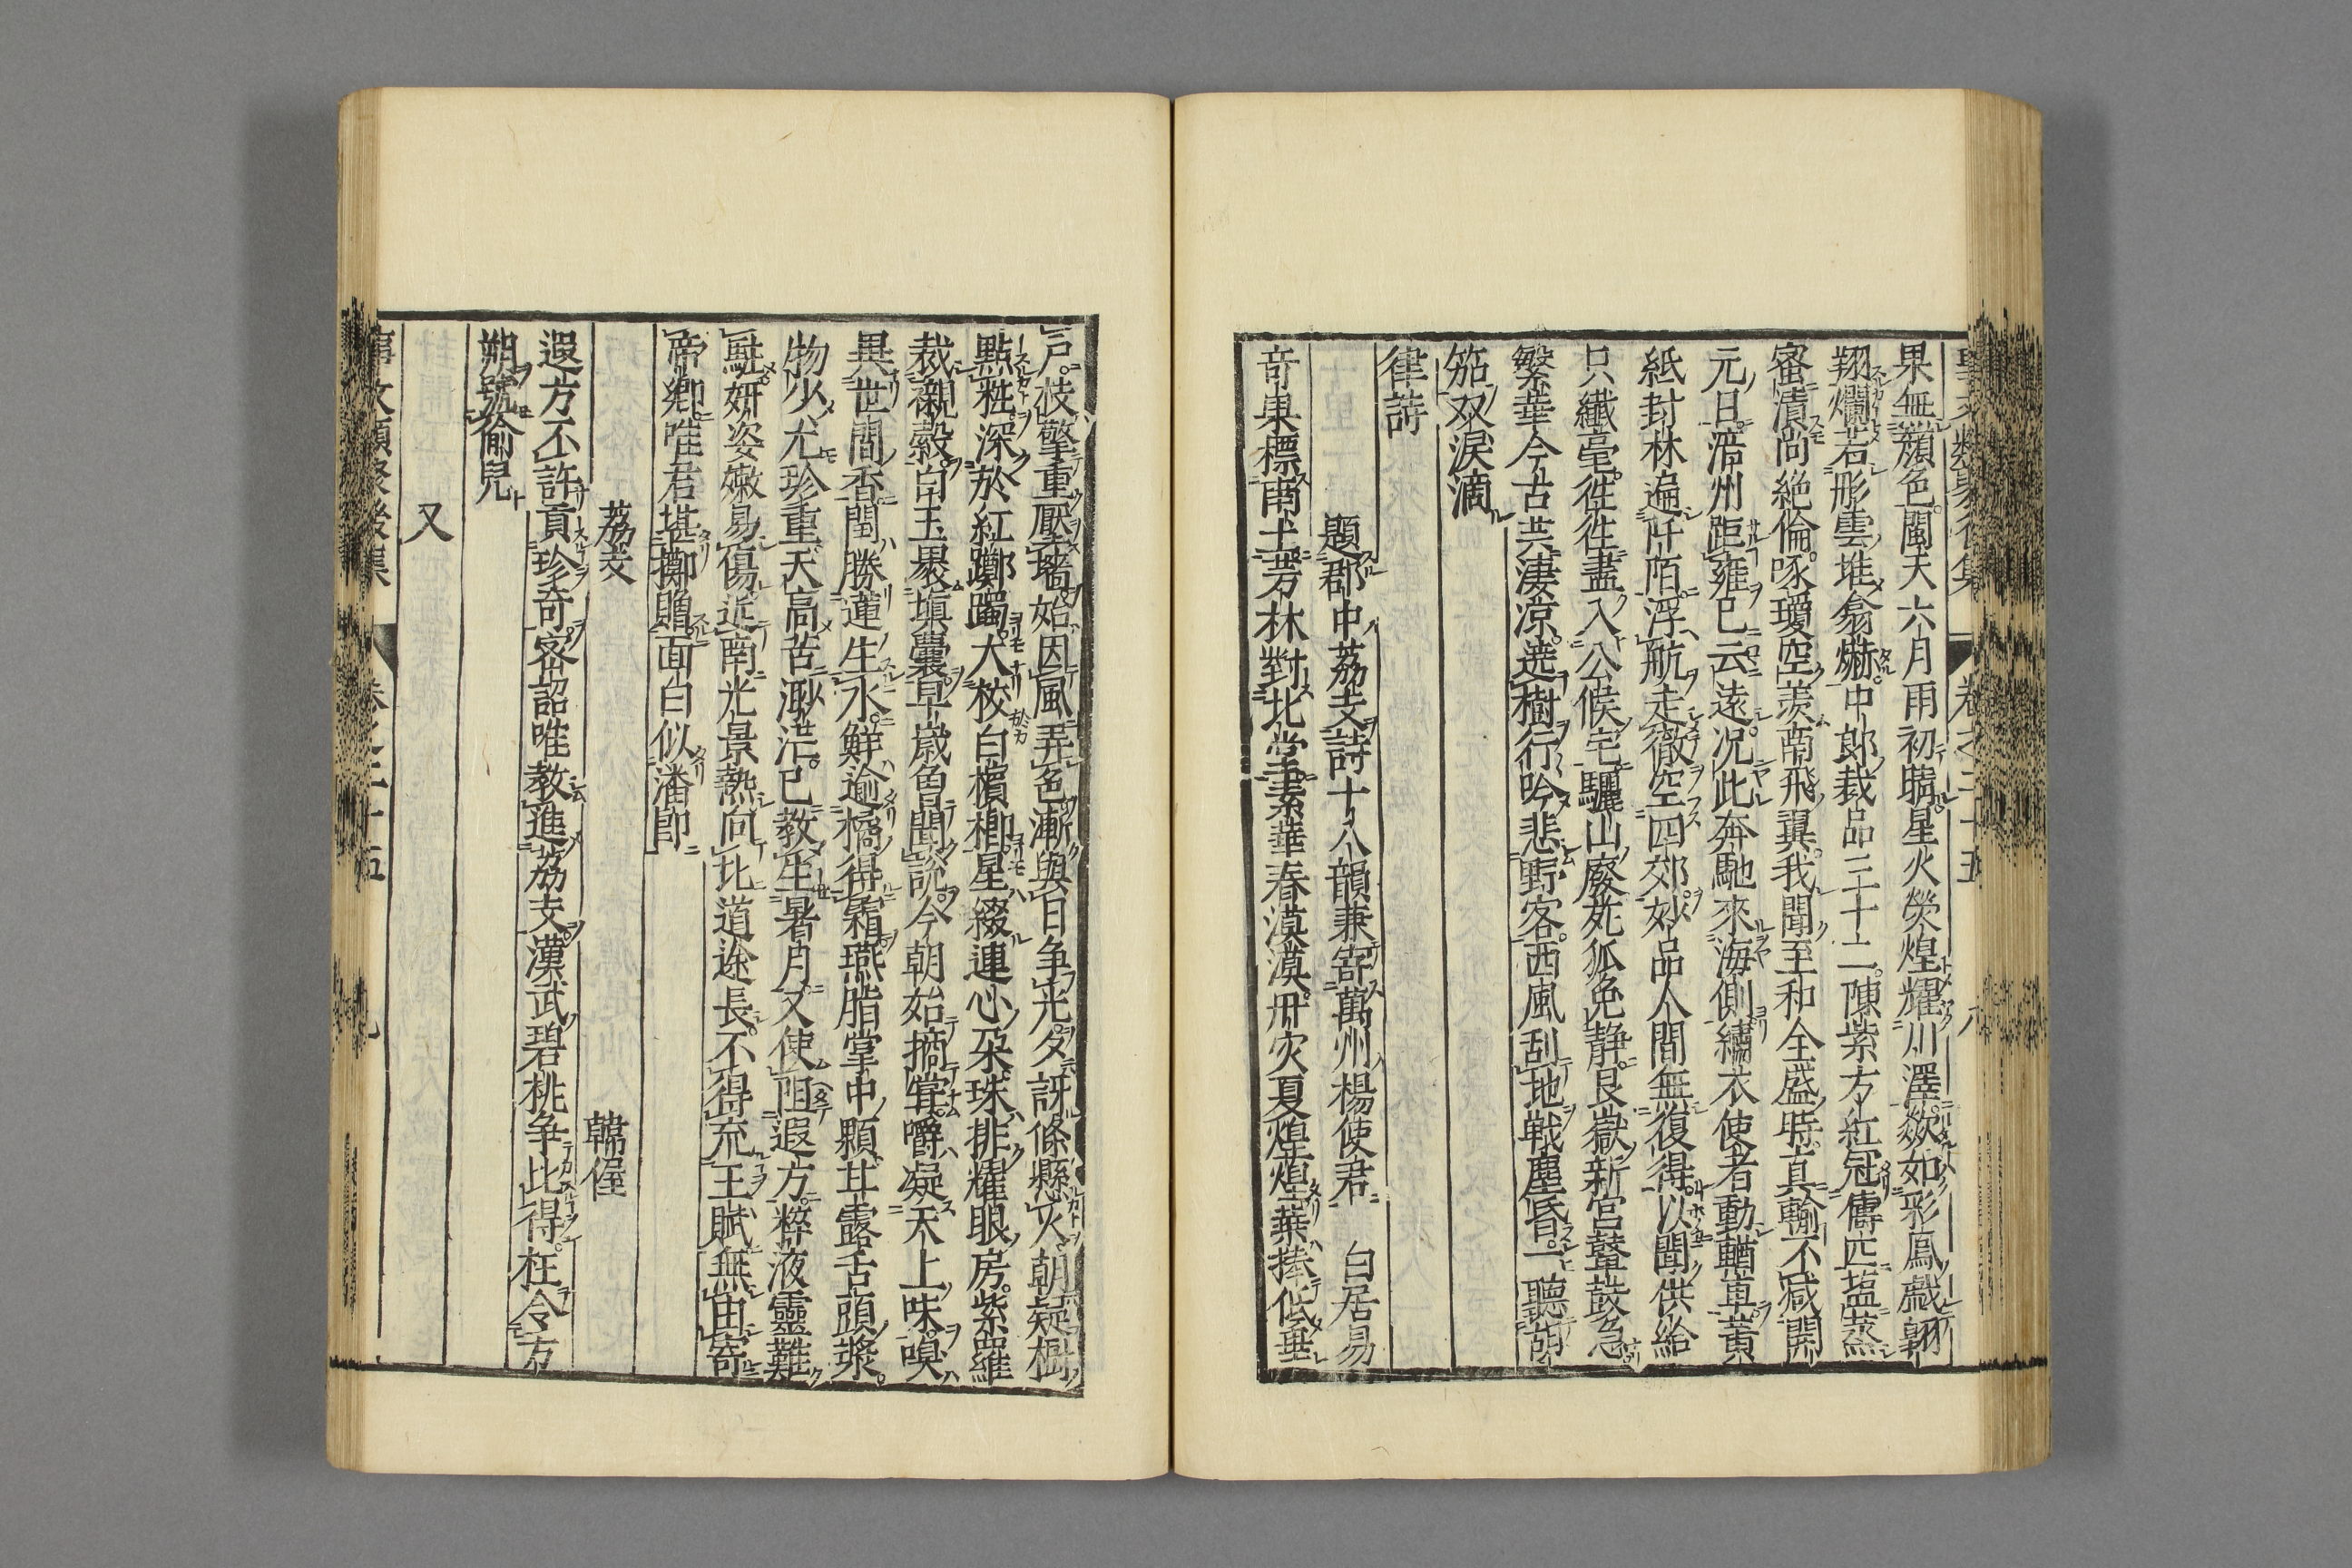 果無顏色閩天六月雨初晴星火熒煌耀川澤欻如彩鳳戲翺
翔爛若彤雲堆翕赩中郎裁品三十二陳紫方紅冠儔匹塩蒸
蜜漬尚絶倫啄瓊空羨南飛翼我聞至和全盛時真輸不減開
元日涪州距雍已云遠况此奔馳來海側繡衣使者動輶車黃
紙封林遍阡陌浮航走徹空四郊妙品人間無復得以聞供給
只纖毫徃徃盡入公候宅驪山廢苑狐免静艮嶽新宮鼙鼓急
繁華今古共淒凉遶樹行吟悲野客西風刮地戦塵昏一聽葫
笳双淚滴
律詩
題郡中荔支詩十八韻兼寄萬州楊使君　白居易
竒果標南土芳林對北堂素華春漠漠丹实夏煌煌葉捧低垂
戶枝擎重壓墻始因風弄色漸與日争光夕訝條懸火朝疑樹
點粧深於紅躑躅大校白檳榔星綴連心朶珠排耀眼房紫羅
裁襯殼白玉裹塡囊早嵗魯聞說今朝始摘甞嚼凝天上味嗅
異世間香閏勝蓮生水鮮逾橘得霜燕脂掌中顆甘露舌頭漿
物少尤珍重天高苦渺茫已教生暑月又使阻遐方粹液靈難
駐妍姿嫩易傷近南光景熱向北道途長不得充王賦無由寄
帝郷唯君堪擲贈面白似潘郎
荔支　韓偓
遐方不許貢珍奇密詔唯教進荔支漢武碧桃争此得枉令方
朔號偷兒
又
事文類聚後集　卷之二十五　九